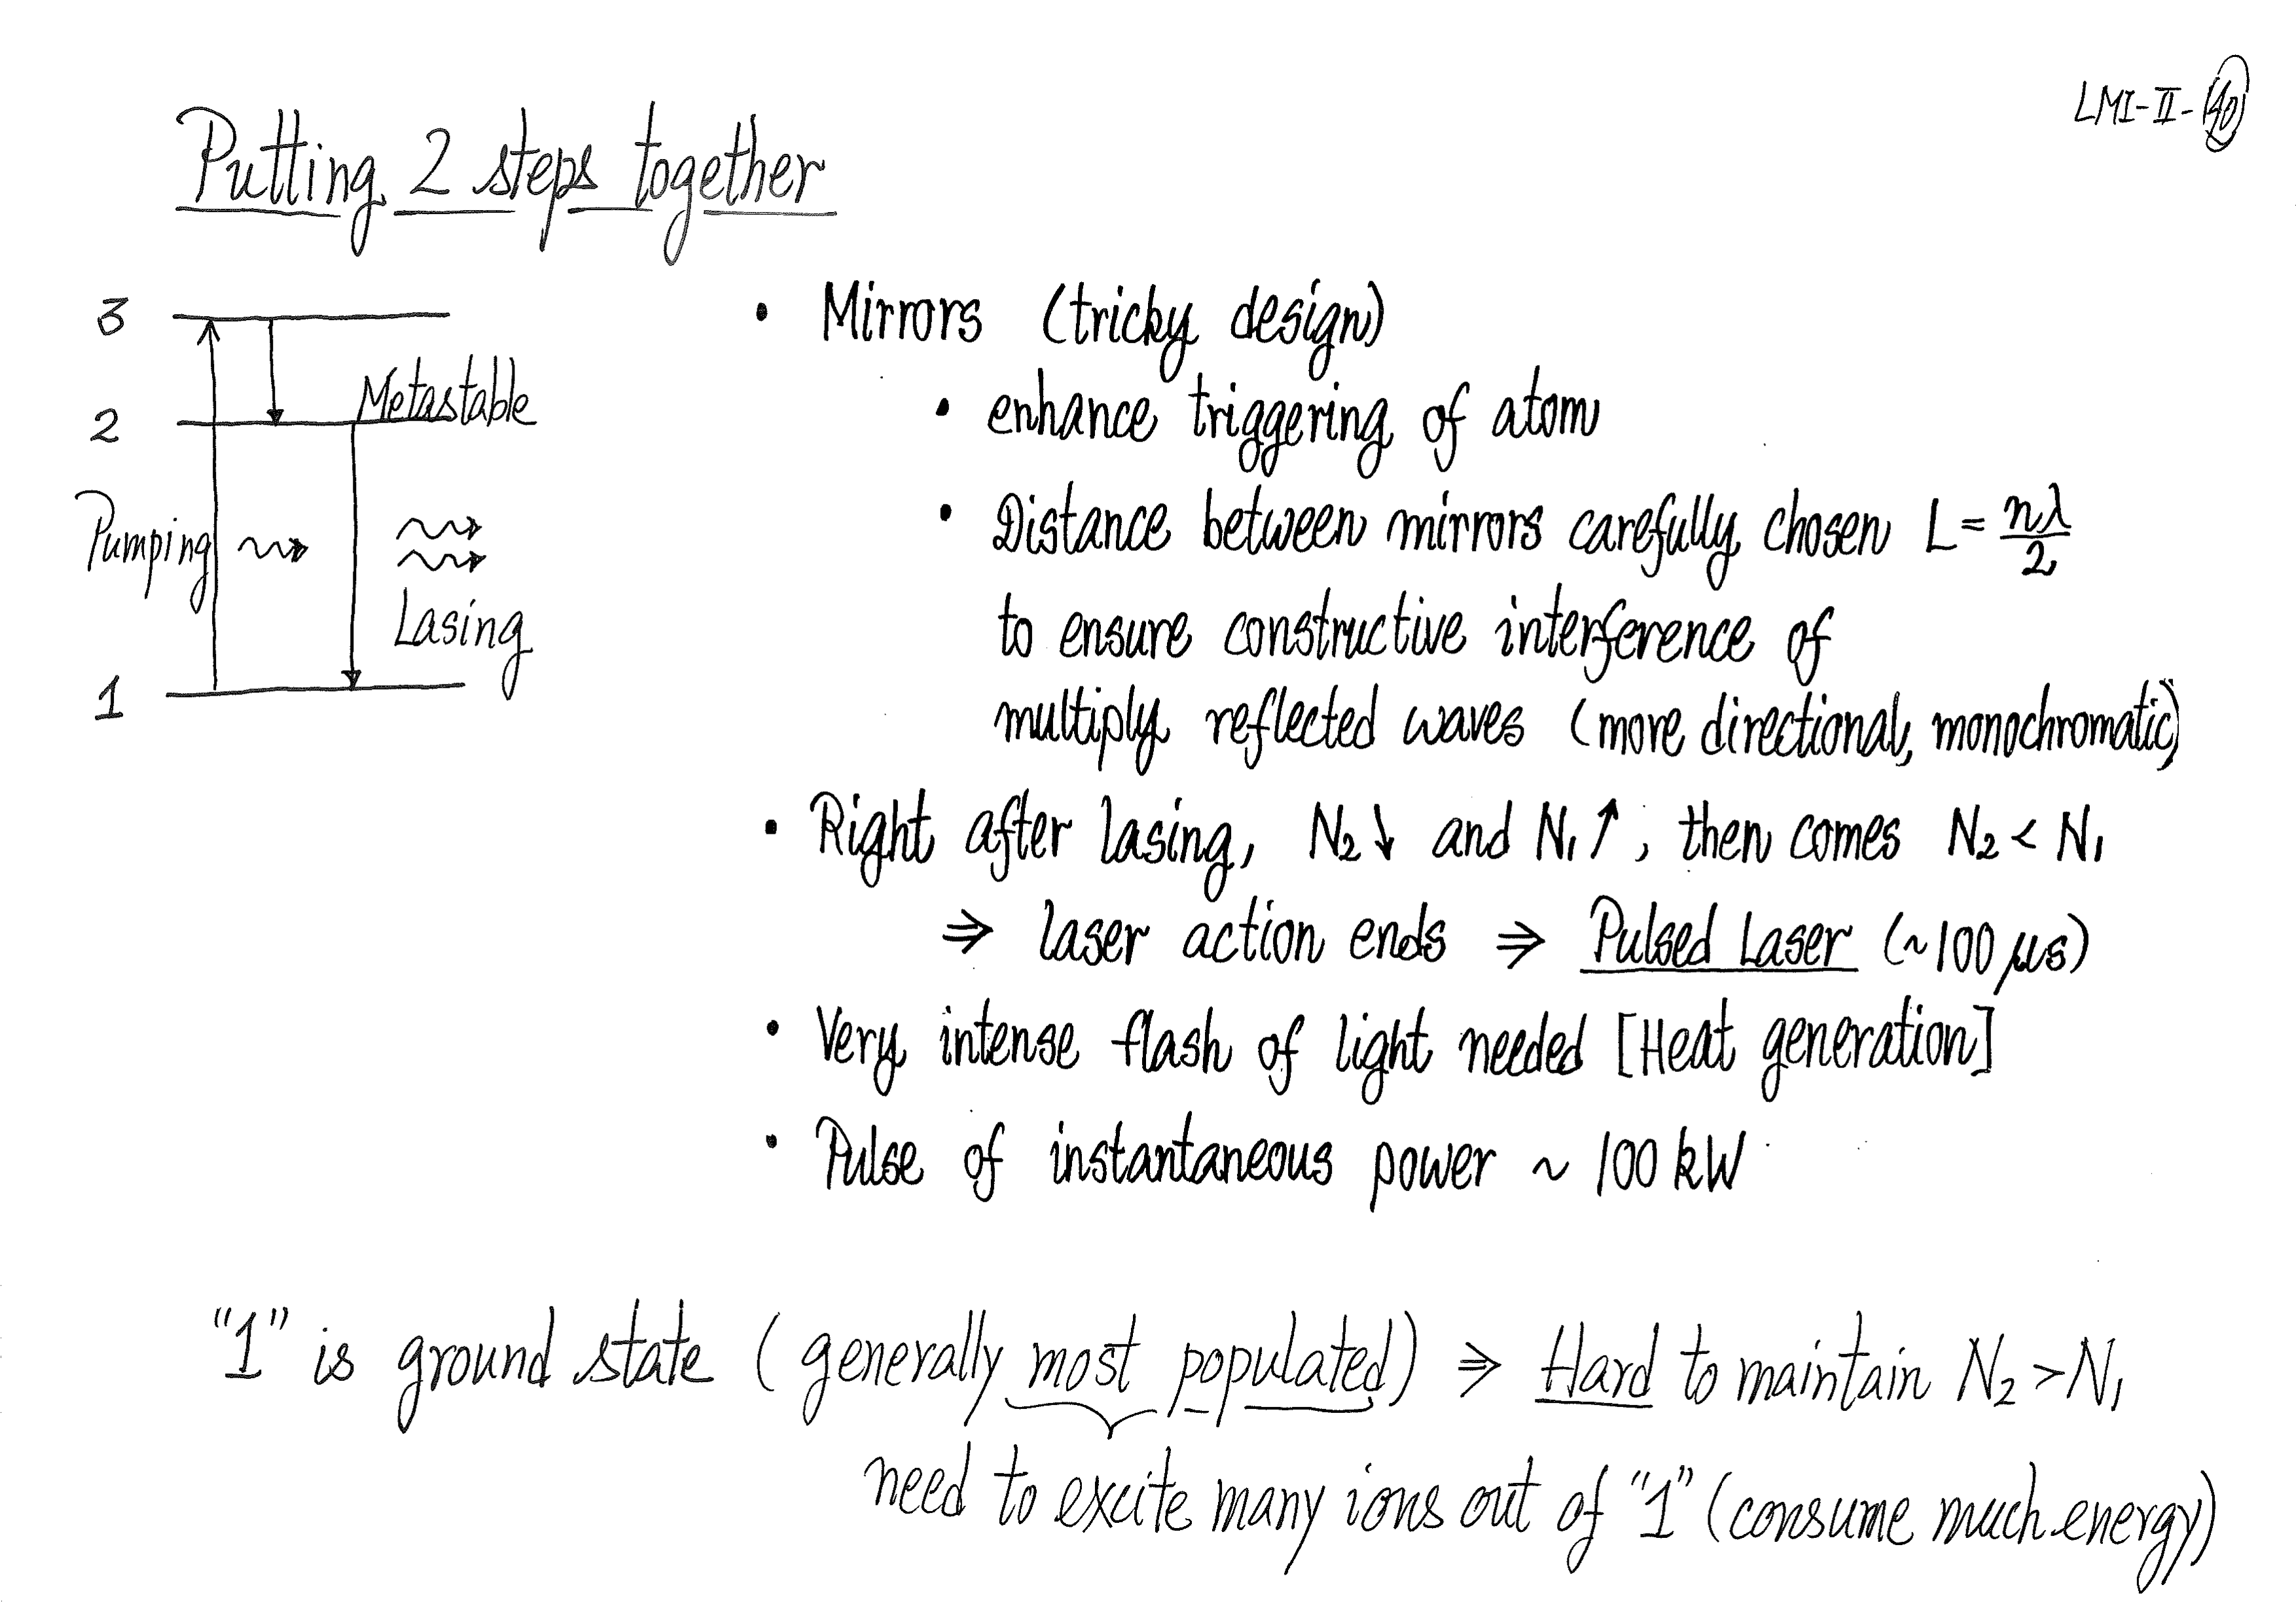 LMI-II-40
Putting 2 steps together
3
Metastable
2
Pumping
Lasing
1
• Mirrors (tricky design)
• enhance triggering of atom
• Distance between mirrors carefully chosen L = nλ/2
to ensure constructive interference of
multiply reflected waves (more directional, monochromatic)
• Right after lasing, N₂↓ and N₁↑, then comes N₂ < N₁
⇒ laser action ends ⇒ Pulsed Laser (~100 μs)
• Very intense flash of light needed [Heat generation]
• Pulse of instantaneous power ~ 100 kW
"1" is ground state (generally most populated) ⇒ Hard to maintain N₂ > N₁
need to excite many ions out of "1" (consume much energy)